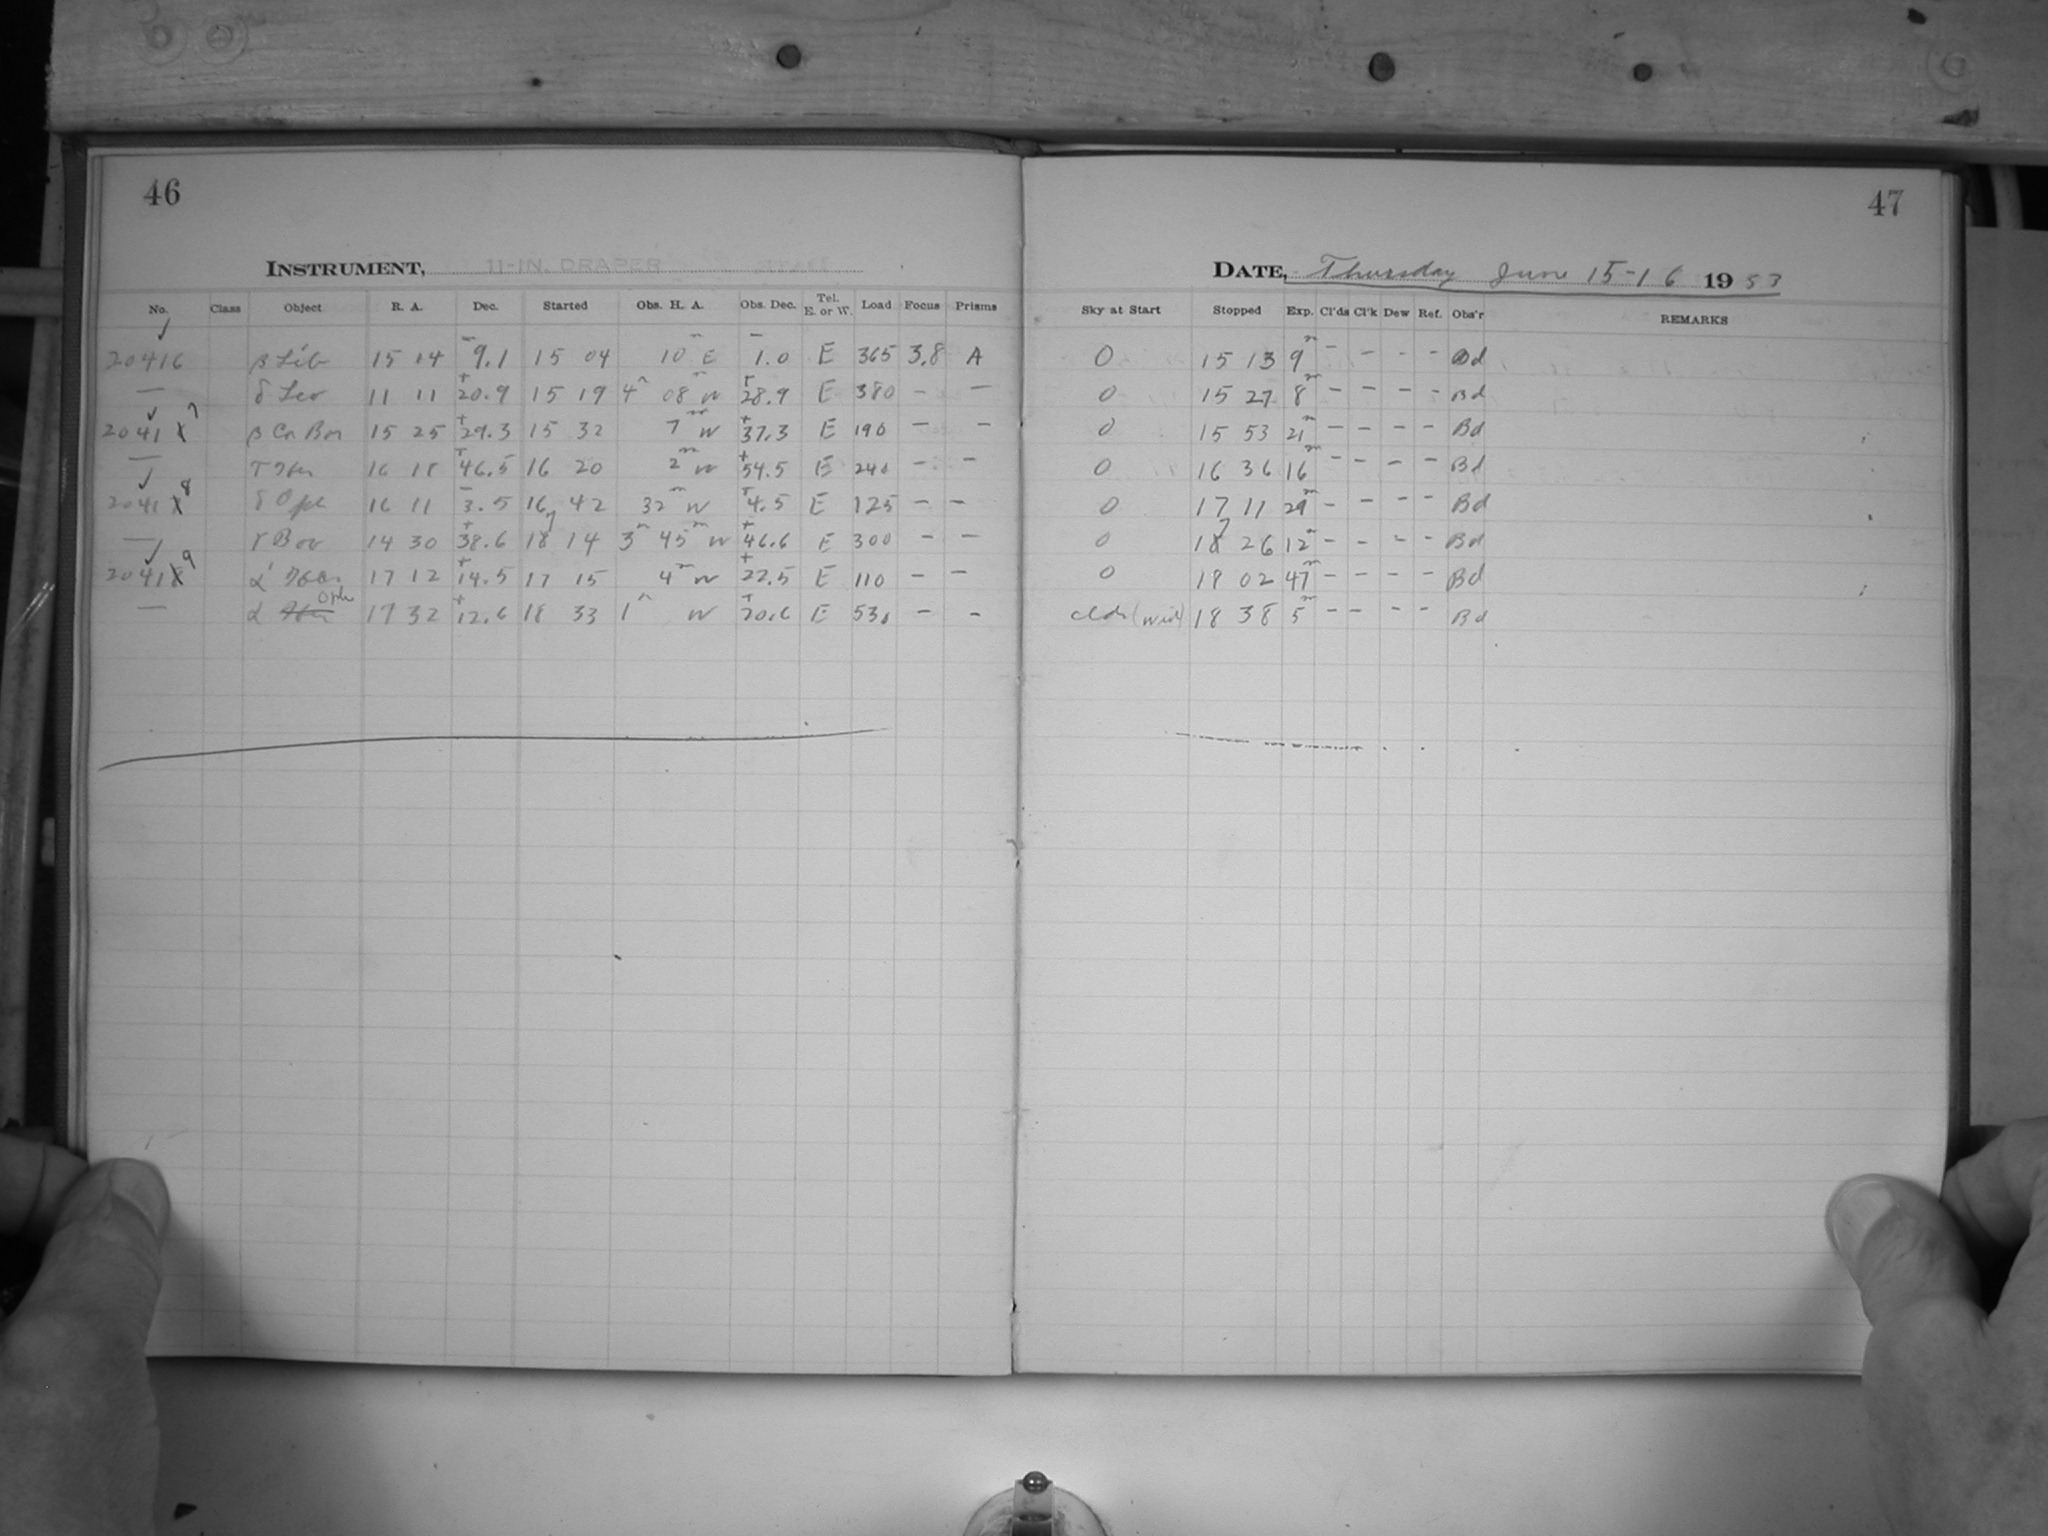 46
INSTRUMENT, 11-IN. DRAPER
No. Class Object R. A. Dec. Started Obs. H. A. Obs. Dec. Tel. E. or W. Load Focus Prisms
20416 β Lib 15 14 −9.1 15 04 10ᵐ E −1.0 E 365 3.8 A
— δ Leo 11 11 +20.9 15 19 4ʰ 08ᵐ W +28.9 E 380 – –
20417 β Cr Bor 15 25 +29.3 15 32 7ᵐ W +37.3 E 190 – –
— τ Her 16 18 +46.5 16 20 2ᵐ W +54.5 E 240 – –
20418 δ Oph 16 11 −3.5 16 42 32ᵐ W +4.5 E 125 – –
— γ Boo 14 30 +38.6 18 14 3ʰ 45ᵐ W +46.6 E 300 – –
20419 α' Her 17 12 +14.5 17 15 4ᵐ W +22.5 E 110 – –
— α Oph 17 32 +12.6 18 33 1ʰ W +20.6 E 530 – –
47
DATE, Thursday June 15-16 1953
Sky at Start Stopped Exp. Cl'ds Cl'k Dew Ref. Obs'r REMARKS
0 15 13 9ᵐ – – – – Bd
0 15 27 8ᵐ – – – – Bd
0 15 53 21ᵐ – – – – Bd
0 16 36 16ᵐ – – – – Bd
0 17 11 29ᵐ – – – – Bd
0 18 26 12ᵐ – – – – Bd
0 18 02 47ᵐ – – – – Bd
clds (wid) 18 38 5ᵐ – – – – Bd